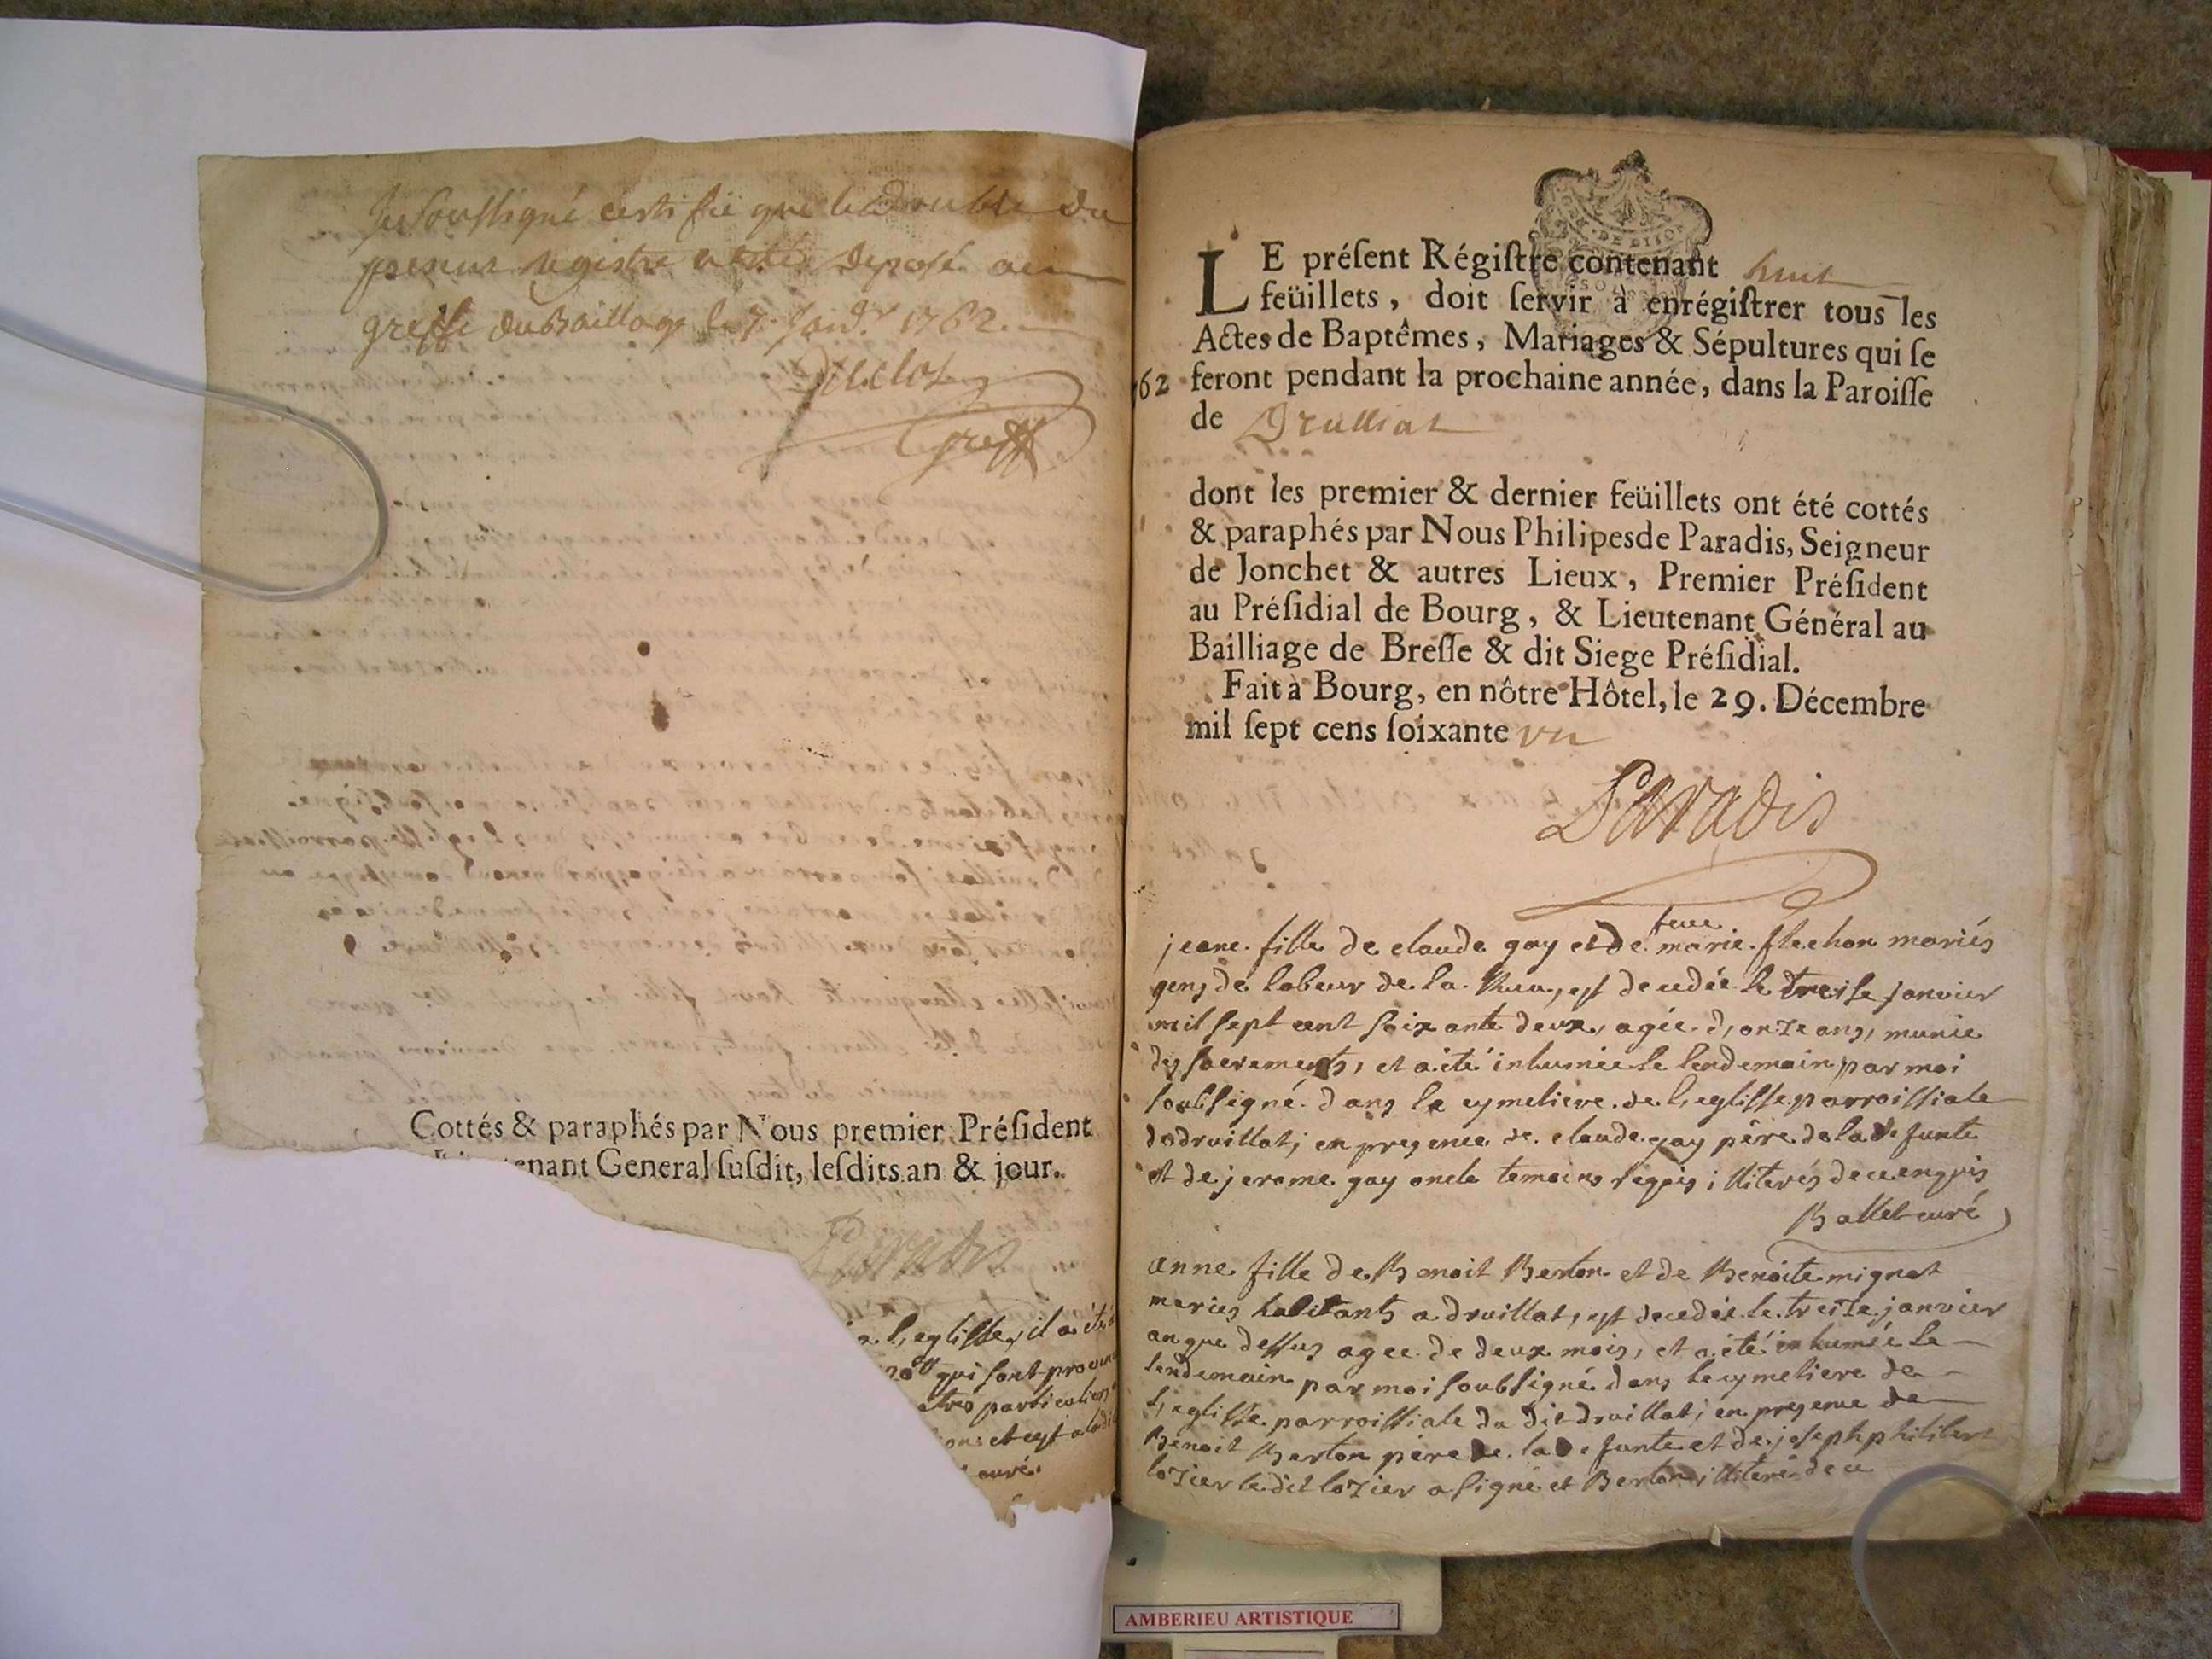 Je soussigné certifie que le double du
present registre a esté deposé au
greffe du Bailliage le 7. Janvr. 1762.
Duclos
Greff
Cottés & paraphés par Nous premier Préſident
enant General ſuſdit, leſdits an & jour.
Paradis
a l'eglisse, il a été
qui sont
autres particuliers
et cest
curé
DE DIJON
LE préſent Régiſtre contenant huit
feüillets, doit ſervir à enrégiſtrer tous les
Actes de Baptêmes, Mariages & Sépultures qui ſe
62 feront pendant la prochaine année, dans la Paroiſſe
de Druillat
dont les premier & dernier feüillets ont été cottés
& paraphés par Nous Philipes de Paradis, Seigneur
de Jonchet & autres Lieux, Premier Préſident
au Préſidial de Bourg, & Lieutenant Général au
Bailliage de Breſſe & dit Siege Préſidial.
Fait à Bourg, en nôtre Hôtel, le 29. Décembre
mil ſept cens ſoixante un
Paradis
feue
jeane fille de claude gay et de marie flechon mariés
gens de labeur de la Rua, est decedée le treise janvier
mil sept cent soixante deux, agée d'onze ans, munie
des sacrements, et a été inhumée le lendemain par moi
soubsigné dans le cymetiere de l'eglisse parroissiale
de druillat; en presence de claude gay père de la defunte
et de jerome gay oncle temoins regis illiterés de ce enquis
Ballet curé
anne fille de Benoit Berton et de Benoite mignot
mariés habitants a druillat, est decedée le treize janvier
an que dessus agee de deux mois, et a été inhumée le
lendemain par moi soubsigné dans le cymetiere de
l'eglisse parroissiale du dit druillat; en presence de
Benoit Berton père de la defunte et de joseph philibert
lozier le dit lozier a signé et Berton illiteré de ce
AMBERIEU ARTISTIQUE